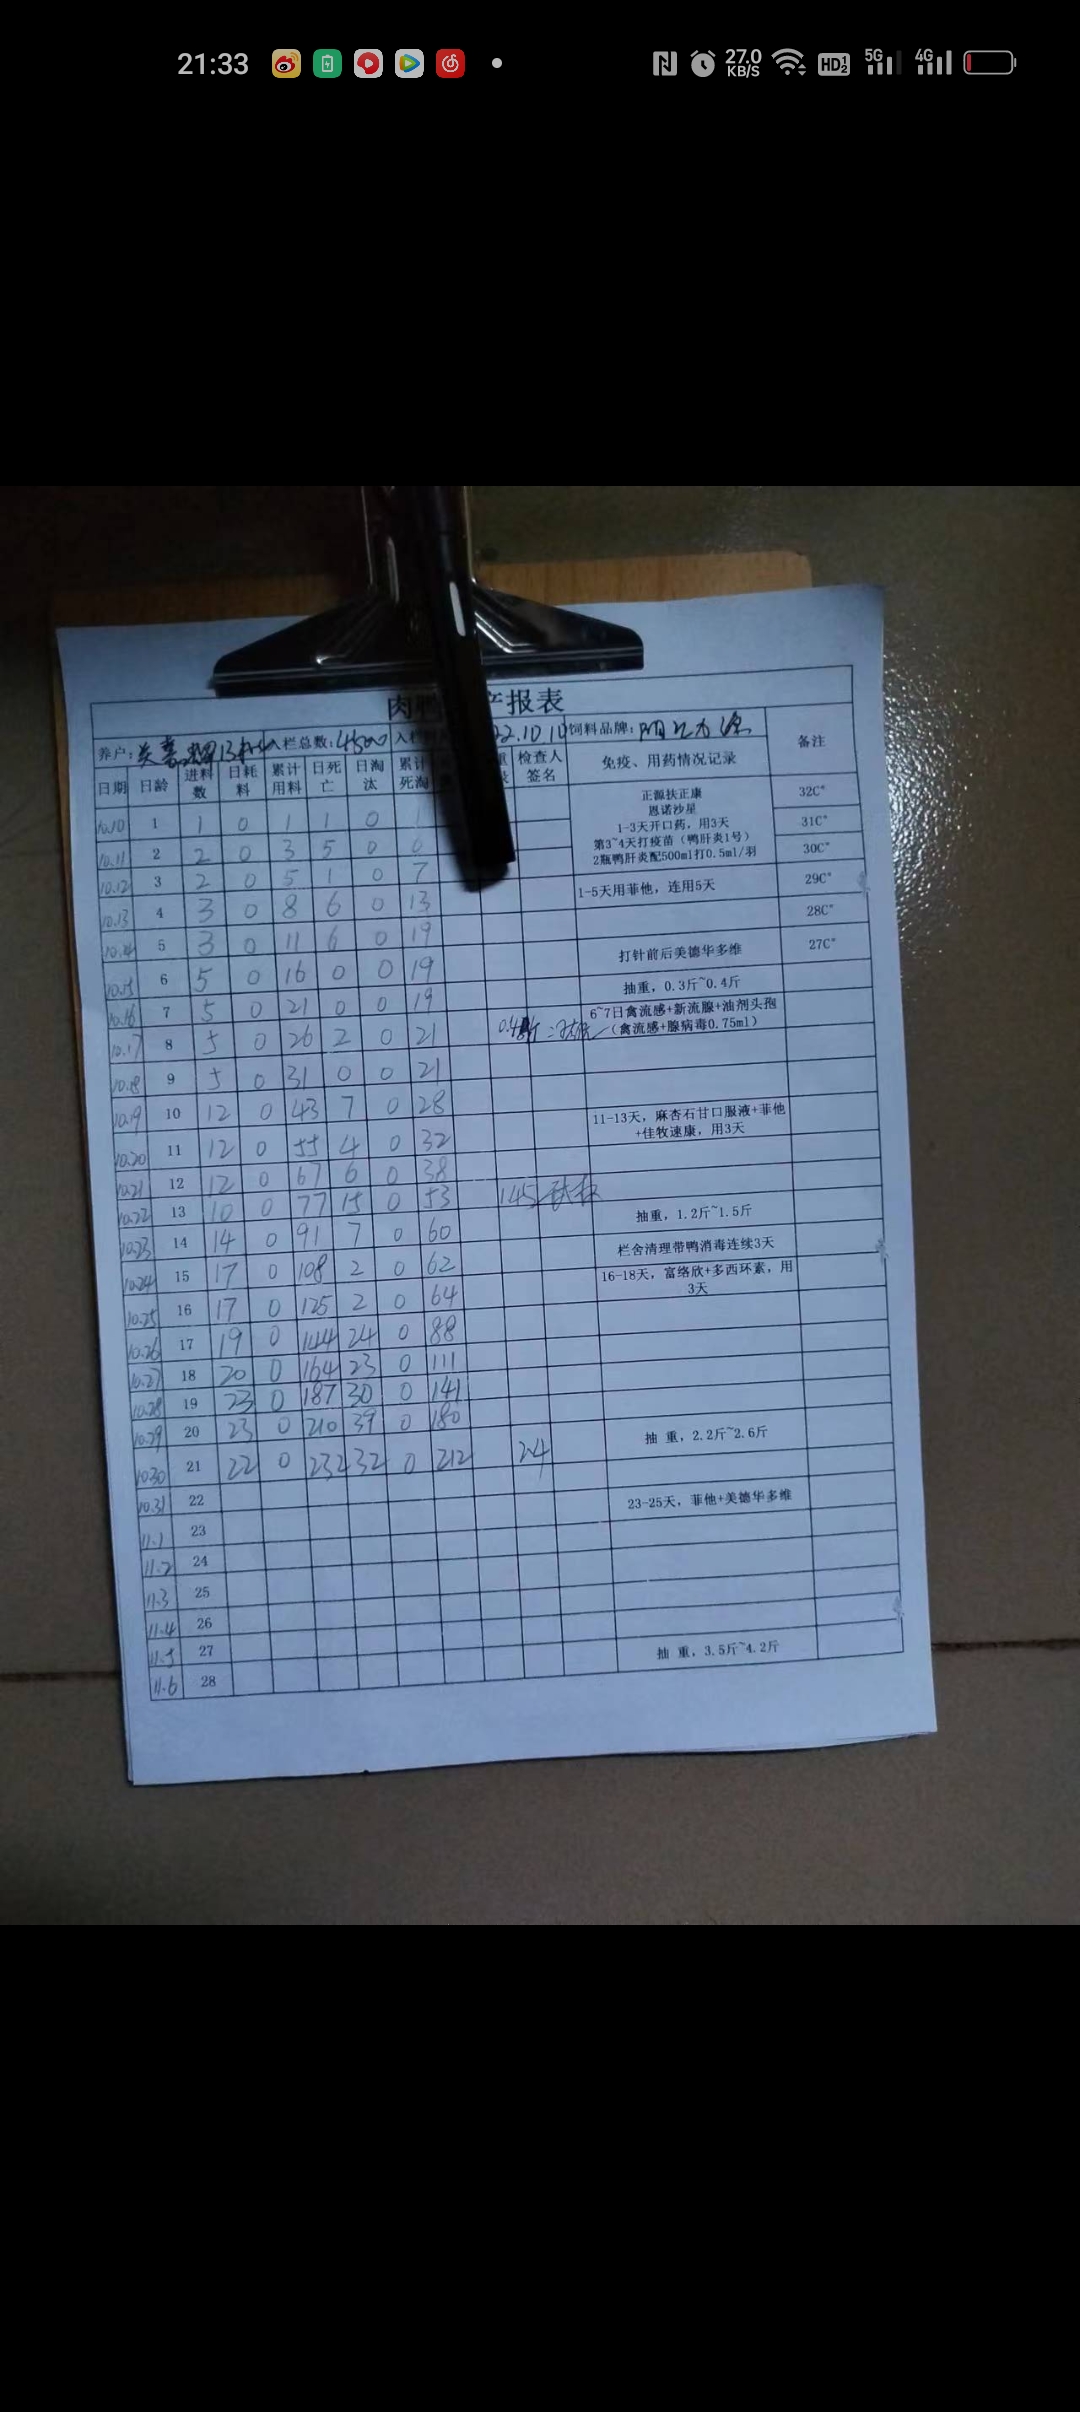 21:33
27.0 KB/S
HD 1 2
5G
4G
肉 产报表
养户: 入栏总数:4500 入栏 22.10.10 饲料品牌: 备注
日期 日龄 进料数 日耗料 累计用料 日死亡 日淘汰 累计死淘 检查人签名 免疫、用药情况记录
正源扶正康
恩诺沙星
1-3天开口药，用3天
第3~4天打疫苗（鸭肝炎1号）
2瓶鸭肝炎配500ml打0.5ml/羽
10.10 1 1 0 1 1 0 1 32C°
10.11 2 2 0 3 5 0 6 31C°
10.12 3 2 0 5 1 0 7 30C°
10.13 4 3 0 8 6 0 13 1-5天用菲他，连用5天 29C°
10.14 5 3 0 11 6 0 19 28C°
10.15 6 5 0 16 0 0 19 打针前后美德华多维 27C°
10.16 7 5 0 21 0 0 19 抽重，0.3斤~0.4斤
10.17 8 5 0 26 2 0 21 6~7日禽流感+新流腺+油剂头孢（禽流感+腺病毒0.75ml）
10.18 9 5 0 31 0 0 21
10.19 10 12 0 43 7 0 28
10.20 11 12 0 55 4 0 32 11-13天，麻杏石甘口服液+菲他+佳牧速康，用3天
10.21 12 12 0 67 6 0 38
10.22 13 10 0 77 15 0 53 1.45
10.23 14 14 0 91 7 0 60 抽重，1.2斤~1.5斤
10.24 15 17 0 108 2 0 62 栏舍清理带鸭消毒连续3天
10.25 16 17 0 125 2 0 64 16-18天，富络欣+多西环素，用3天
10.26 17 19 0 144 24 0 88
10.27 18 20 0 164 23 0 111
10.28 19 23 0 187 30 0 141
10.29 20 23 0 210 39 0 180
10.30 21 22 0 232 32 0 212 2.4 抽 重，2.2斤~2.6斤
10.31 22
11.1 23 23-25天，菲他+美德华多维
11.2 24
11.3 25
11.4 26
11.5 27
11.6 28 抽 重，3.5斤~4.2斤